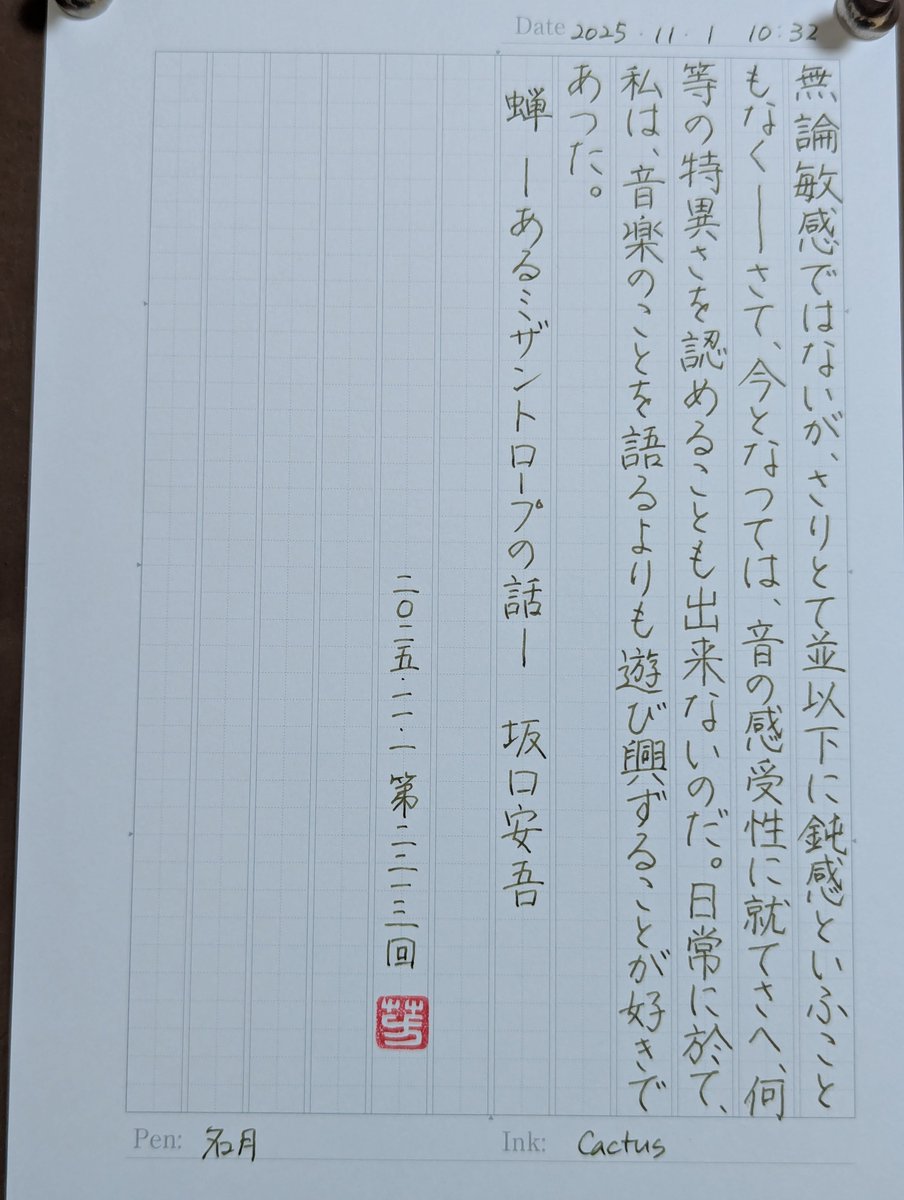 Date 2025・11・1 10:32
無論敏感ではないが、さりとて並以下に鈍感といふこと
もなく――さて、今となつては、音の感受性に就てさへ、何
等の特異さを認めることも出来ないのだ。日常に於て、
私は、音楽のことを語るよりも遊び興ずることが好きで
あつた。
蝉 ―あるミザントロープの話― 坂口安吾
二〇二五・一一・一 第二二一三回
Pen: 名月
Ink: Cactus